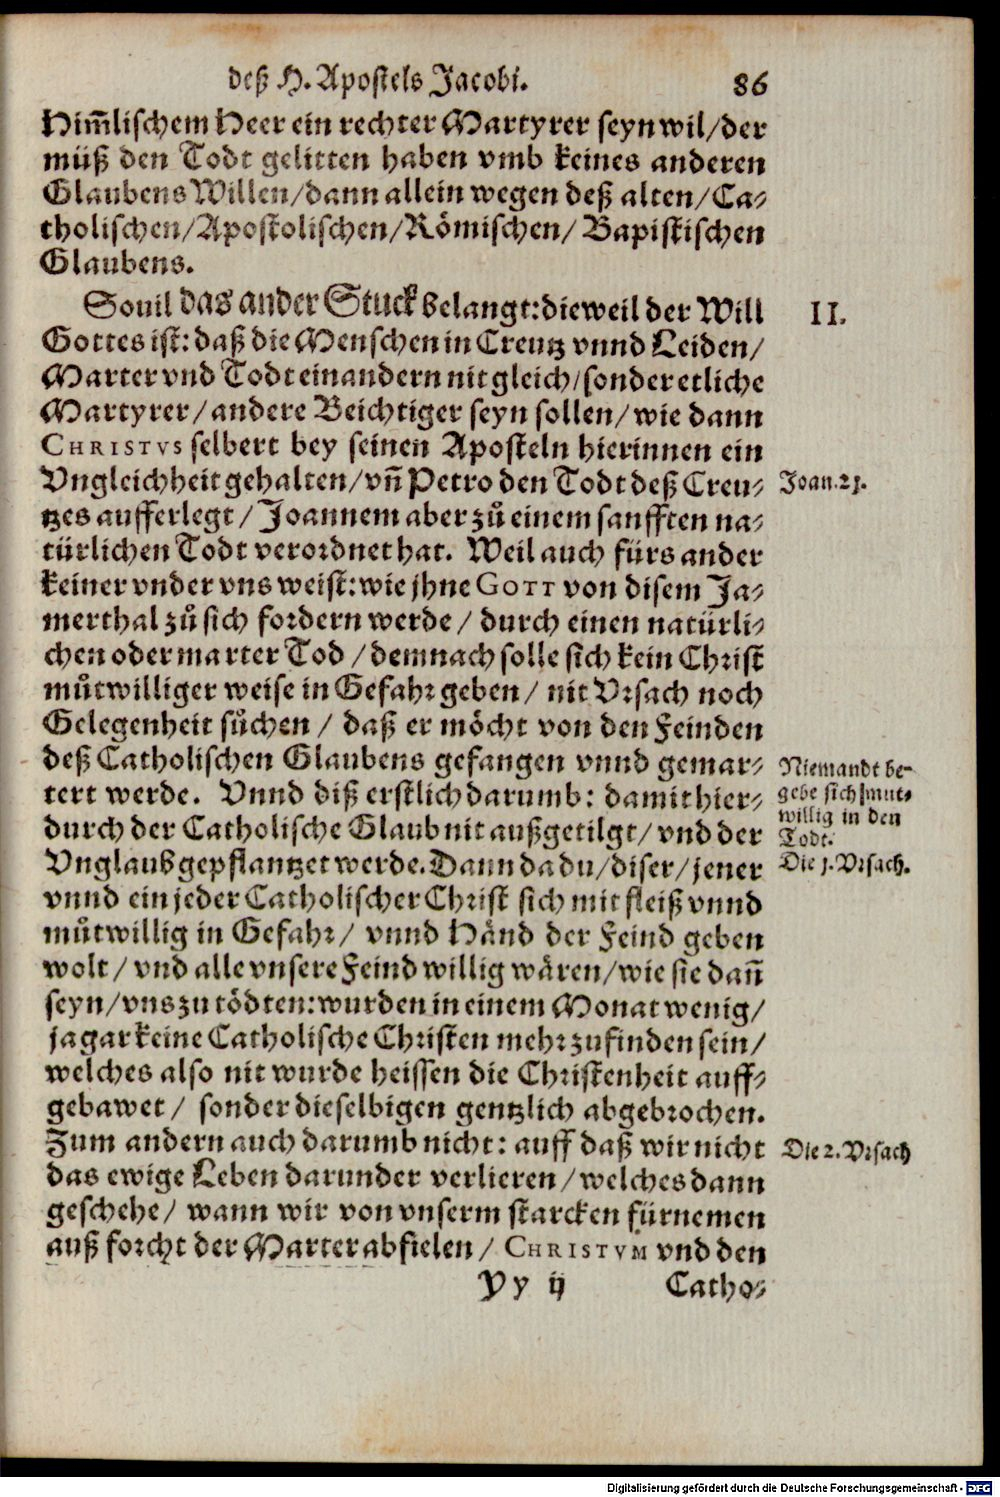 deß H. Apostels Jacobi. 86
Him̃lischem Heer ein rechter Martyrer seyn wil/der
müß den Todt gelitten haben vmb keines anderen
Glaubens Willen/dann allein wegen deß alten/Ca-
tholischen/Apostolischen/Römischen/ Bapistischen
Glaubens.
Souil das ander Stuck belangt: dieweil der Will
II.
Gottes ist: daß die Menschen in Creutz vnnd Leiden/
Marter vnd Todt einandern nit gleich/sonder etliche
Martyrer/andere Beichtiger seyn sollen/wie dann
CHRISTVS selbert bey seinen Aposteln hierinnen ein
Vngleichheit gehalten/vñ Petro den Todt deß Creu-
Joan.21.
tzes aufferlegt/ Joannem aber zů einem sanfften na-
türlichen Todt verordnet hat. Weil auch fürs ander
keiner vnder vns weist: wie jhne GOTT von disem Ja-
merthal zů sich fordern werde/ durch einen natürli-
chen oder marter Tod/demnach solle sich kein Christ
můtwilliger weise in Gefahr geben/ nit Vrsach noch
Gelegenheit sůchen/ daß er möcht von den Feinden
deß Catholischen Glaubens gefangen vnnd gemar-
tert werde. Vnnd diß erstlich darumb: damit hier-
durch der Catholische Glaub nit außgetilgt/ vnd der
Niemandt be-
gebe sich mut-
willig in den
Todt.
Vnglaub gepflantzet werde. Dann da du/diser/jener
Die 1. Vrsach.
vnnd ein jeder Catholischer Christ sich mit fleiß vnnd
můtwillig in Gefahr/ vnnd Händ der Feind geben
wolt/ vnd alle vnsere Feind willig wären/wie sie dañ
seyn/vns zu tödten: wurden in einem Monat wenig/
ja gar keine Catholische Christen mehr zufinden sein/
welches also nit wurde heissen die Christenheit auff-
gebawet/ sonder dieselbigen gentzlich abgebrochen.
Zum andern auch darumb nicht: auff daß wir nicht
Die 2. Vrsach
das ewige Leben darunder verlieren/welches dann
geschehe/ wann wir von vnserm starcken fürnemen
auß forcht der Marter abfielen/ CHRISTVM vnd den
Yy ij Catho-
Digitalisierung gefördert durch die Deutsche Forschungsgemeinschaft - DFG